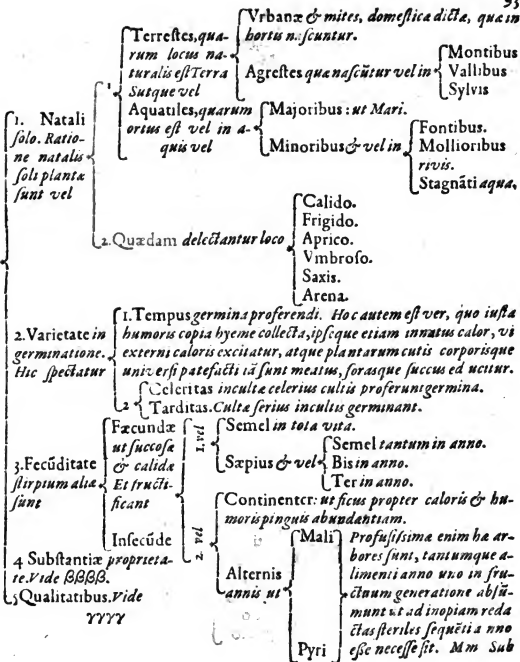 93
Vrbanæ & mites, domestica dictæ, quæ in
hortis nascuntur.
Terrestres, qua-
rum locus na-
turalis est Terra
Suntque vel
Agrestes quæ nascũtur vel in
Montibus
Vallibus
Sylvis
Aquatiles, quarum
ortus est vel in a-
quis vel
Majoribus: ut Mari.
Minoribus & vel in
Fontibus.
Mollioribus
rivis.
Stagnãti aqua,
1. Natali
solo. Ratio-
ne natalis
soli plantæ
sunt vel
1
2. Quædam delectantur loco
Calido.
Frigido.
Aprico.
Vmbroso.
Saxis.
Arena.
2. Varietate in
germinatione.
Hic spectatur
1. Tempus germina proferendi. Hoc autem est ver, quo iusta
humoris copia hyeme collecta, ipseque etiam innatus calor, vi
externi caloris excitatur, atque plantarum cutis corporisque
universi patefacti iã sunt meatus, forasque succus educitur.
2
Celeritas incultæ celerius cultis proferunt germina.
Tarditas. Cultæ serius incultis germinant.
3. Fecũditate
stirpium aliæ
sunt
Fæcundæ
ut succosæ
& calidæ
Et fructi-
ficant
1. vel
Semel in tota vita.
Sæpius & vel
Semel tantum in anno.
Bis in anno.
Ter in anno.
2 vel
Continenter: ut ficus propter caloris & hu-
moris pinguis abundantiam.
Alternis
annis ut
Mali
Pyri
Profusissimæ enim hæ ar-
bores sunt, tantumque a-
limenti anno uno in fru-
ctuum generatione absũ-
munt ut ad inopiam reda
ctas steriles sequẽti anno
esse necesse sit. Mm Sub
Insecũde
4 Substantiæ proprieta-
te. Vide ββββ.
5 Qualitatibus. Vide
γγγγ